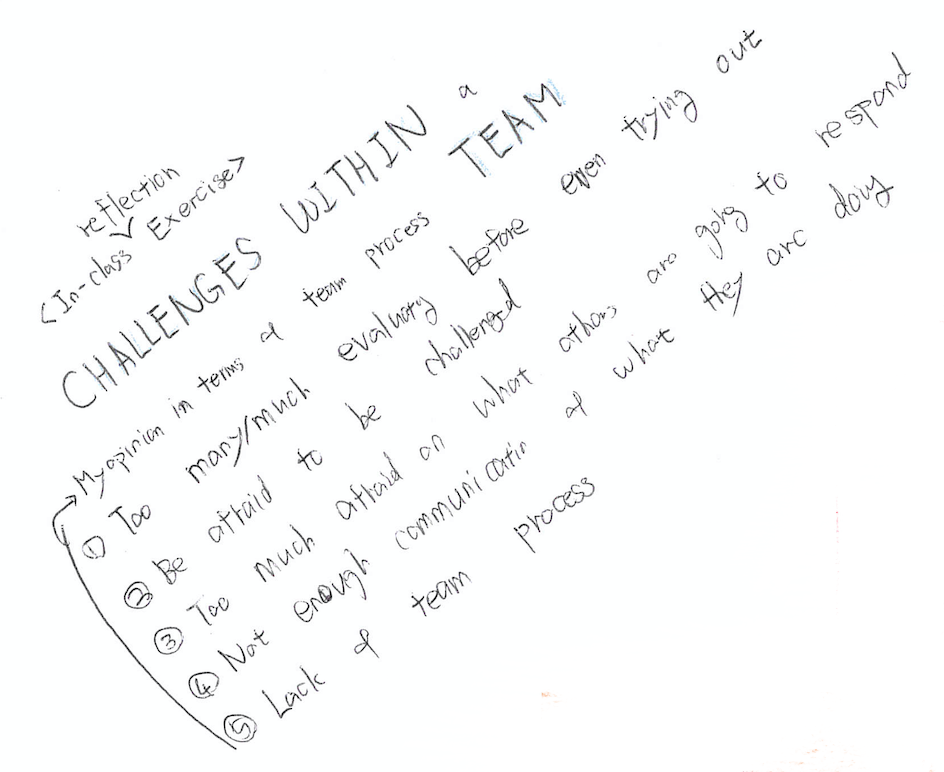 <In-class reflection Exercise>
CHALLENGES WITHIN a TEAM
My opinion in terms of team process
① Too many/much evaluary before even trying out
② Be afraid to be challenged
③ Too much afraid on what others are going to respond
④ Not enough communicatin of what they are doing
⑤ Lack of team process